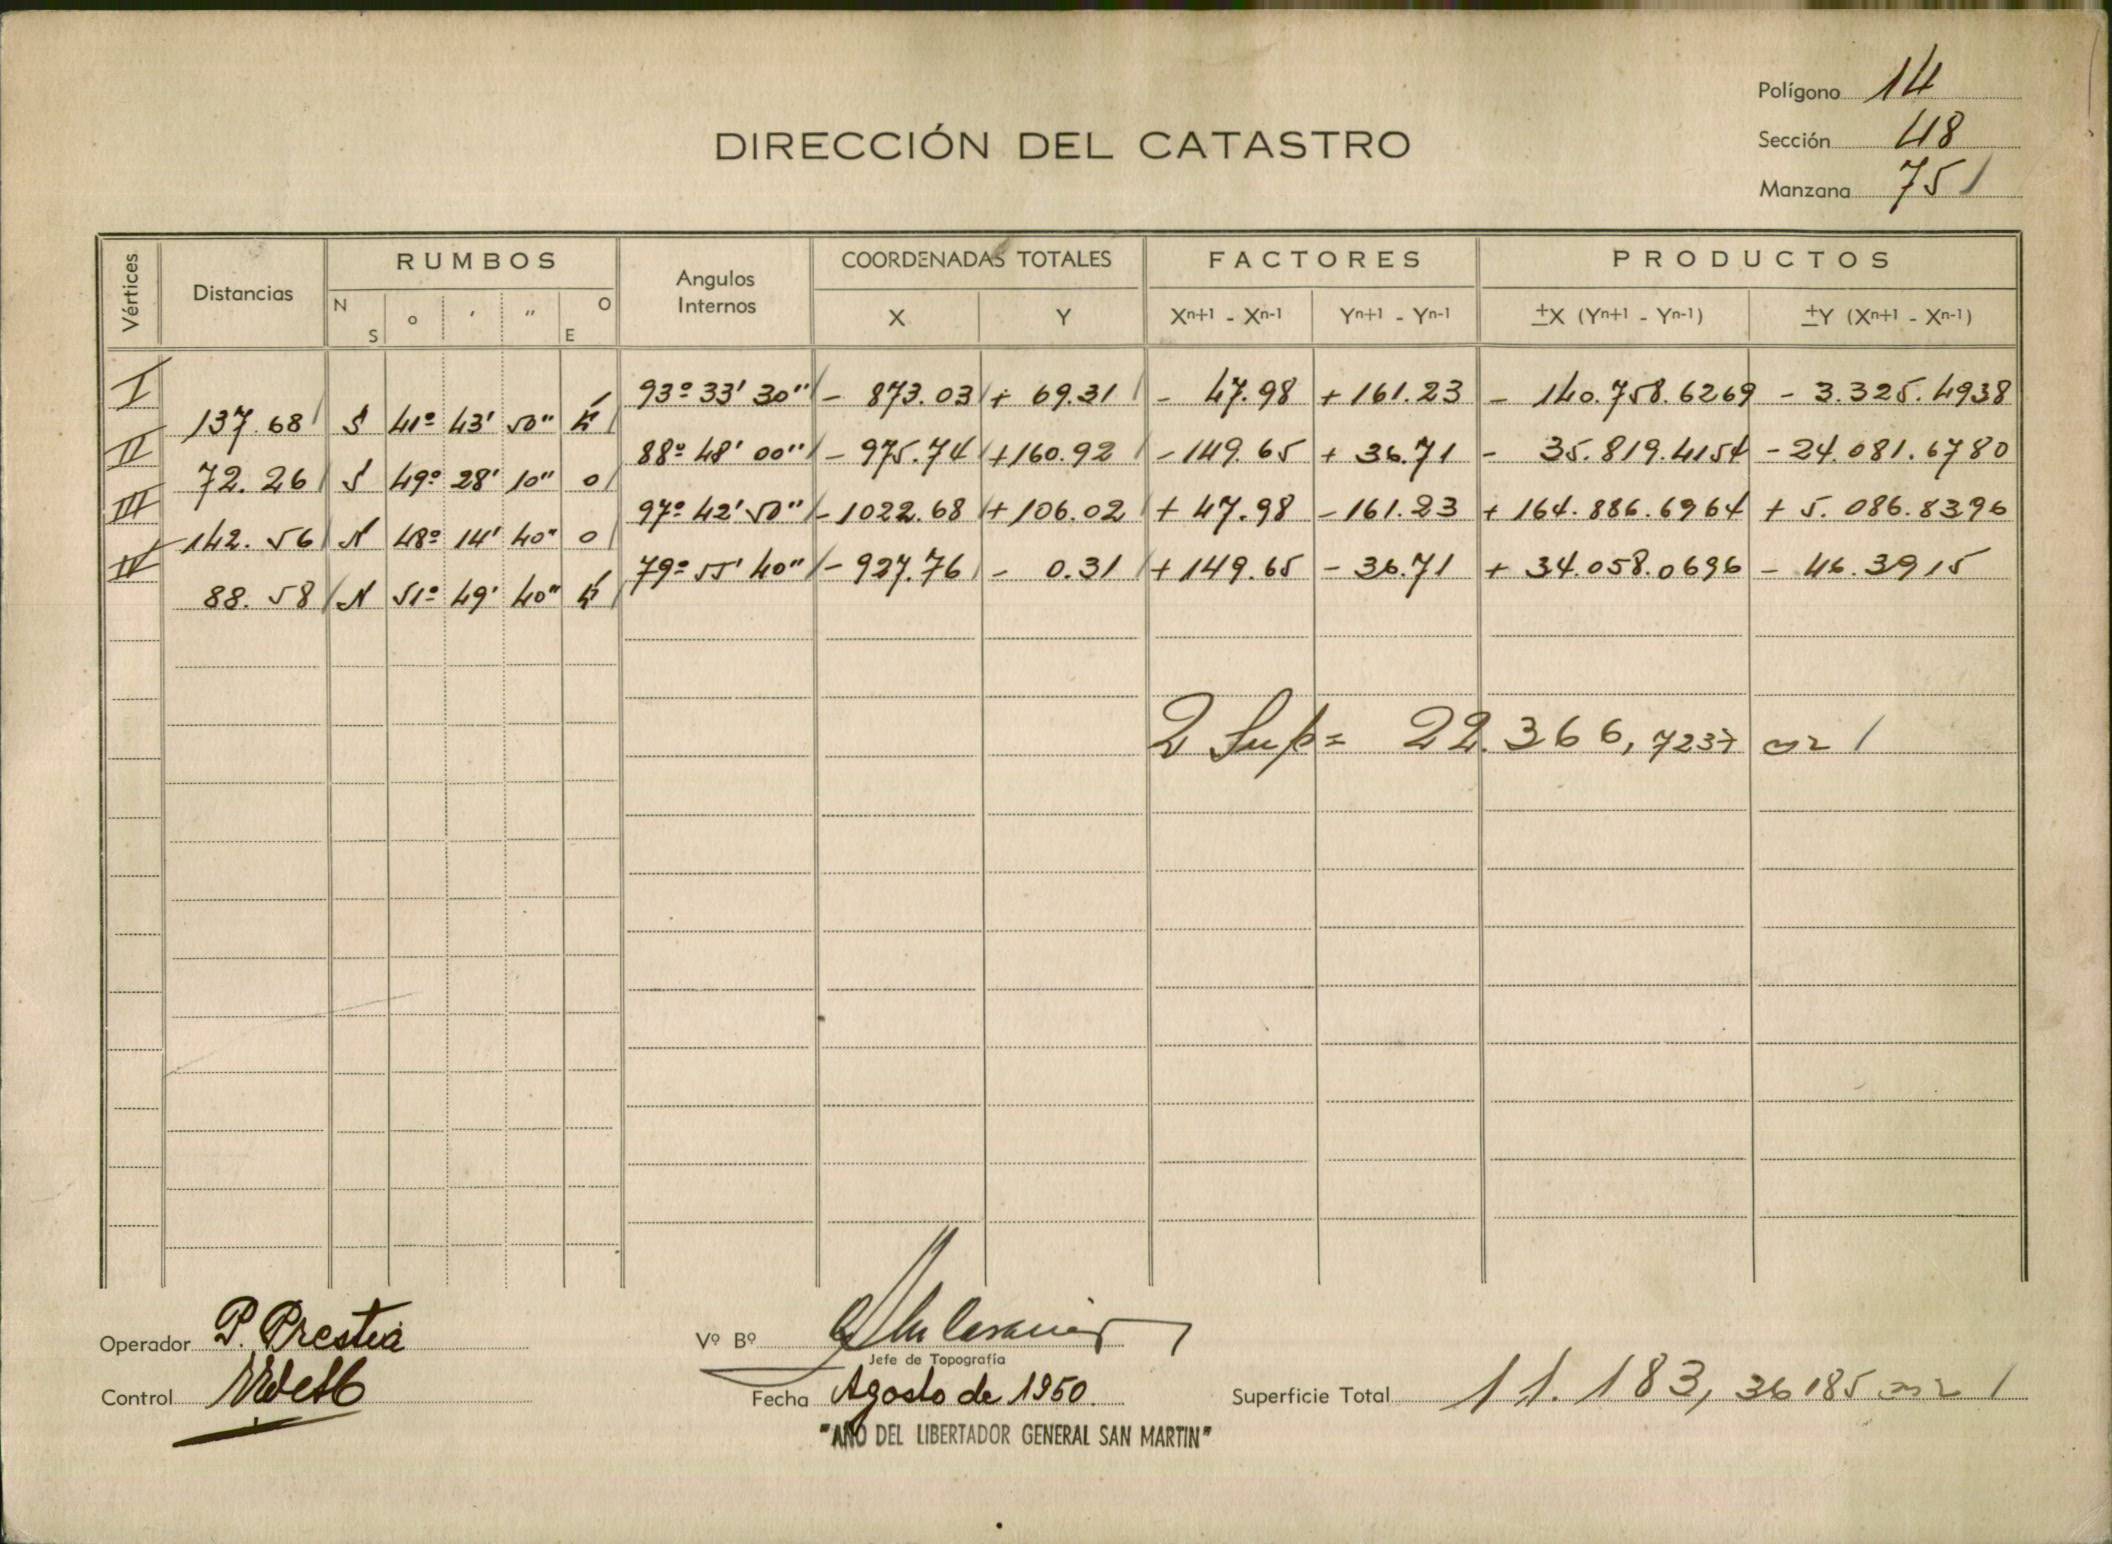 Polígono 14
DIRECCIÓN DEL CATASTRO
Sección 48
Manzana 751
Vértices Distancias RUMBOS Angulos Internos COORDENADAS TOTALES FACTORES PRODUCTOS
N S o ' '' O E X Y Xn+1 - Xn-1 Yn+1 - Yn-1 ±X (Yn+1 - Yn-1) ±Y (Xn+1 - Xn-1)
I 93º 33' 30'' - 873.03 + 69.31 - 47.98 + 161.23 - 140.758.6269 - 3.325.4938
137.68 S 41º 43' 50'' E
II 88º 48' 00'' - 975.74 + 160.92 - 149.65 + 36.71 - 35.819.4154 - 24.081.6780
72.26 S 49º 28' 10'' O
III 97º 42' 50'' - 1022.68 + 106.02 + 47.98 - 161.23 + 164.886.6964 + 5.086.8396
142.56 N 48º 14' 40'' O
IV 79º 55' 40'' - 927.76 - 0.31 + 149.65 - 36.71 + 34.058.0696 - 46.3915
88.58 N 51º 49' 40'' E
2 Sup = 22.366,7237 m2
Operador P. Prestia
Vº Bº
Jefe de Topografía
Control
Fecha Agosto de 1950.
Superficie Total 11.183,36185 m2
"AÑO DEL LIBERTADOR GENERAL SAN MARTIN"